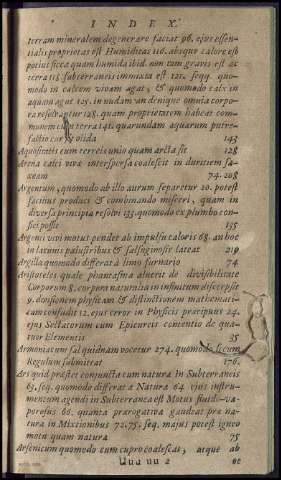 INDEX.
terram mineralem degenerare faciat 96. ejus essen-
tialis proprietas est Humiditas 116. absque calore est
potius sicca quam humida ibid. non tam gravis est ac
terra 118. subterraneis immixta est 121. seqq. quo-
modo in calcem vivam agat, & quomodo calx in
aquam agat 125. in nudam an denique omnia corpo-
ra resolvantur 128. quam proprietatem habeat com-
munem cum terra 141. quarundam aquarum putre-
factio cur fœtida 143
Aquositatis cum terreis unio quam arcta sit 128
Arena calci vivæ interspersa coalescit in duritiem sa-
xeam 74. 208
Argentum, quomodo ab illo aurum separetur 20. potest
factitius produci & combinando misceri, quam in
diversa principia resolvi 133. quomodo ex plumbo con-
fici possit 135
Argenti vivi motus pendet ab impulsu caloris 68. an hoc
in lacunis palustribus & salsuginosis lateat 219
Argilla quomodo differat à limo furnario 74
Aristoteles quale phantasma aluerit de divisibilitate
Corporum 8. corpora naturalia in infinitum discerpsit
9. divisionem physicam & distinctionem mathemati-
cam confudit 12. ejus error in Physicis præcipuus 24.
ejus Sectatorum cum Epicureis contentio de qua-
tuor Elementis 35
Armoniacum sal quidnam vocetur 274. quomodo secum
Regulum sublimet
Ars quid præstet conjuncta cum natura in Subterraneis
63. seq. quomodo differat à Natura 64. ejus instru-
mentum agendi in Subterranea est Motus fluidi-va-
porosus 66. quanta prærogativa gaudeat præ na-
tura in Mixtionibus 72. 75. seq. majus potest igneo
motu quam natura 75
Arsenicum quomodo cum cupro coalescat, atque ab
Uuu uu 2 eo